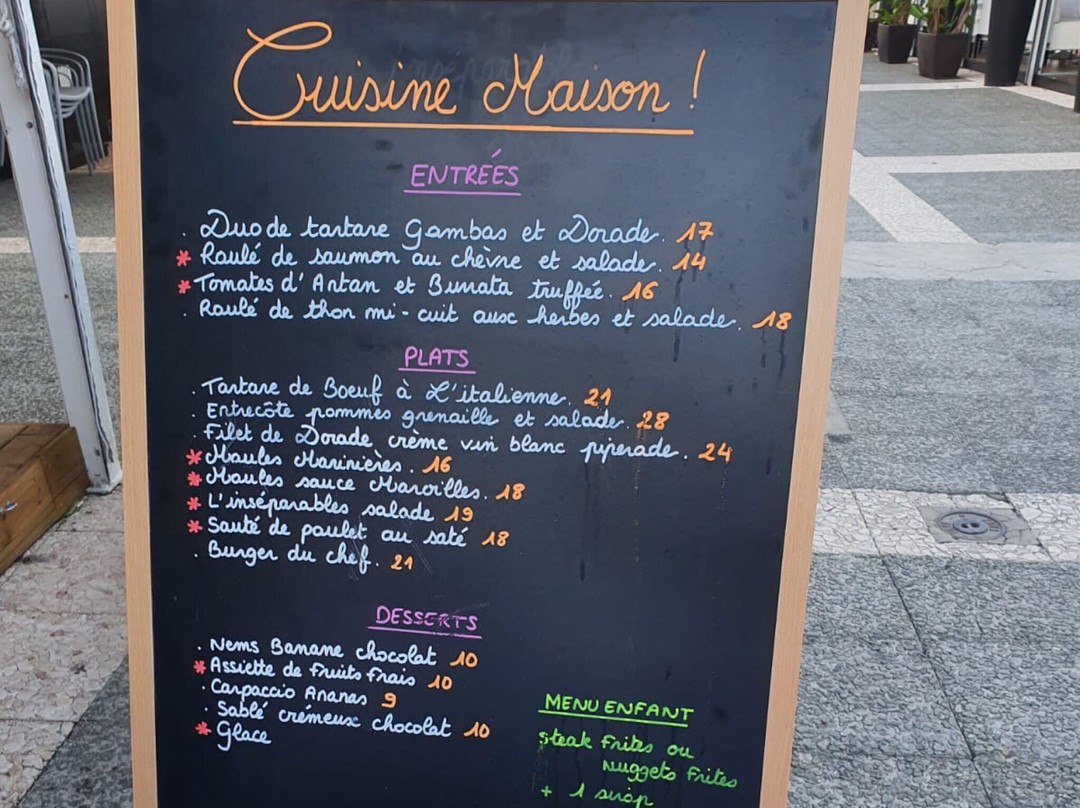 Cuisine Maison !
ENTREÉS
. Duo de tartare Gambas et Dorade. 17
* Roulé de saumon au chèvre et salade. 14
* Tomates d'Antan et Burrata truffée. 16
. Roulé de thon mi-cuit aux herbes et salade. 18
PLATS
. Tartare de Boeuf à L'italienne. 21
. Entrecôte pommes grenaille et salade. 28
. Filet de Dorade crème vin blanc piperade. 24
* Moules Marinières. 16
* Moules sauce Maroilles. 18
* L'inséparables salade 19
* Sauté de poulet au saté 18
. Burger du chef. 21
DESSERTS
. Nems Banane chocolat 10
* Assiette de Fruits Frais 10
. Carpaccio Ananas 9
. Sablé crémeux chocolat 10
* Glace
MENU ENFANT
Steak Frites ou
Nuggets Frites
+ 1 sirop